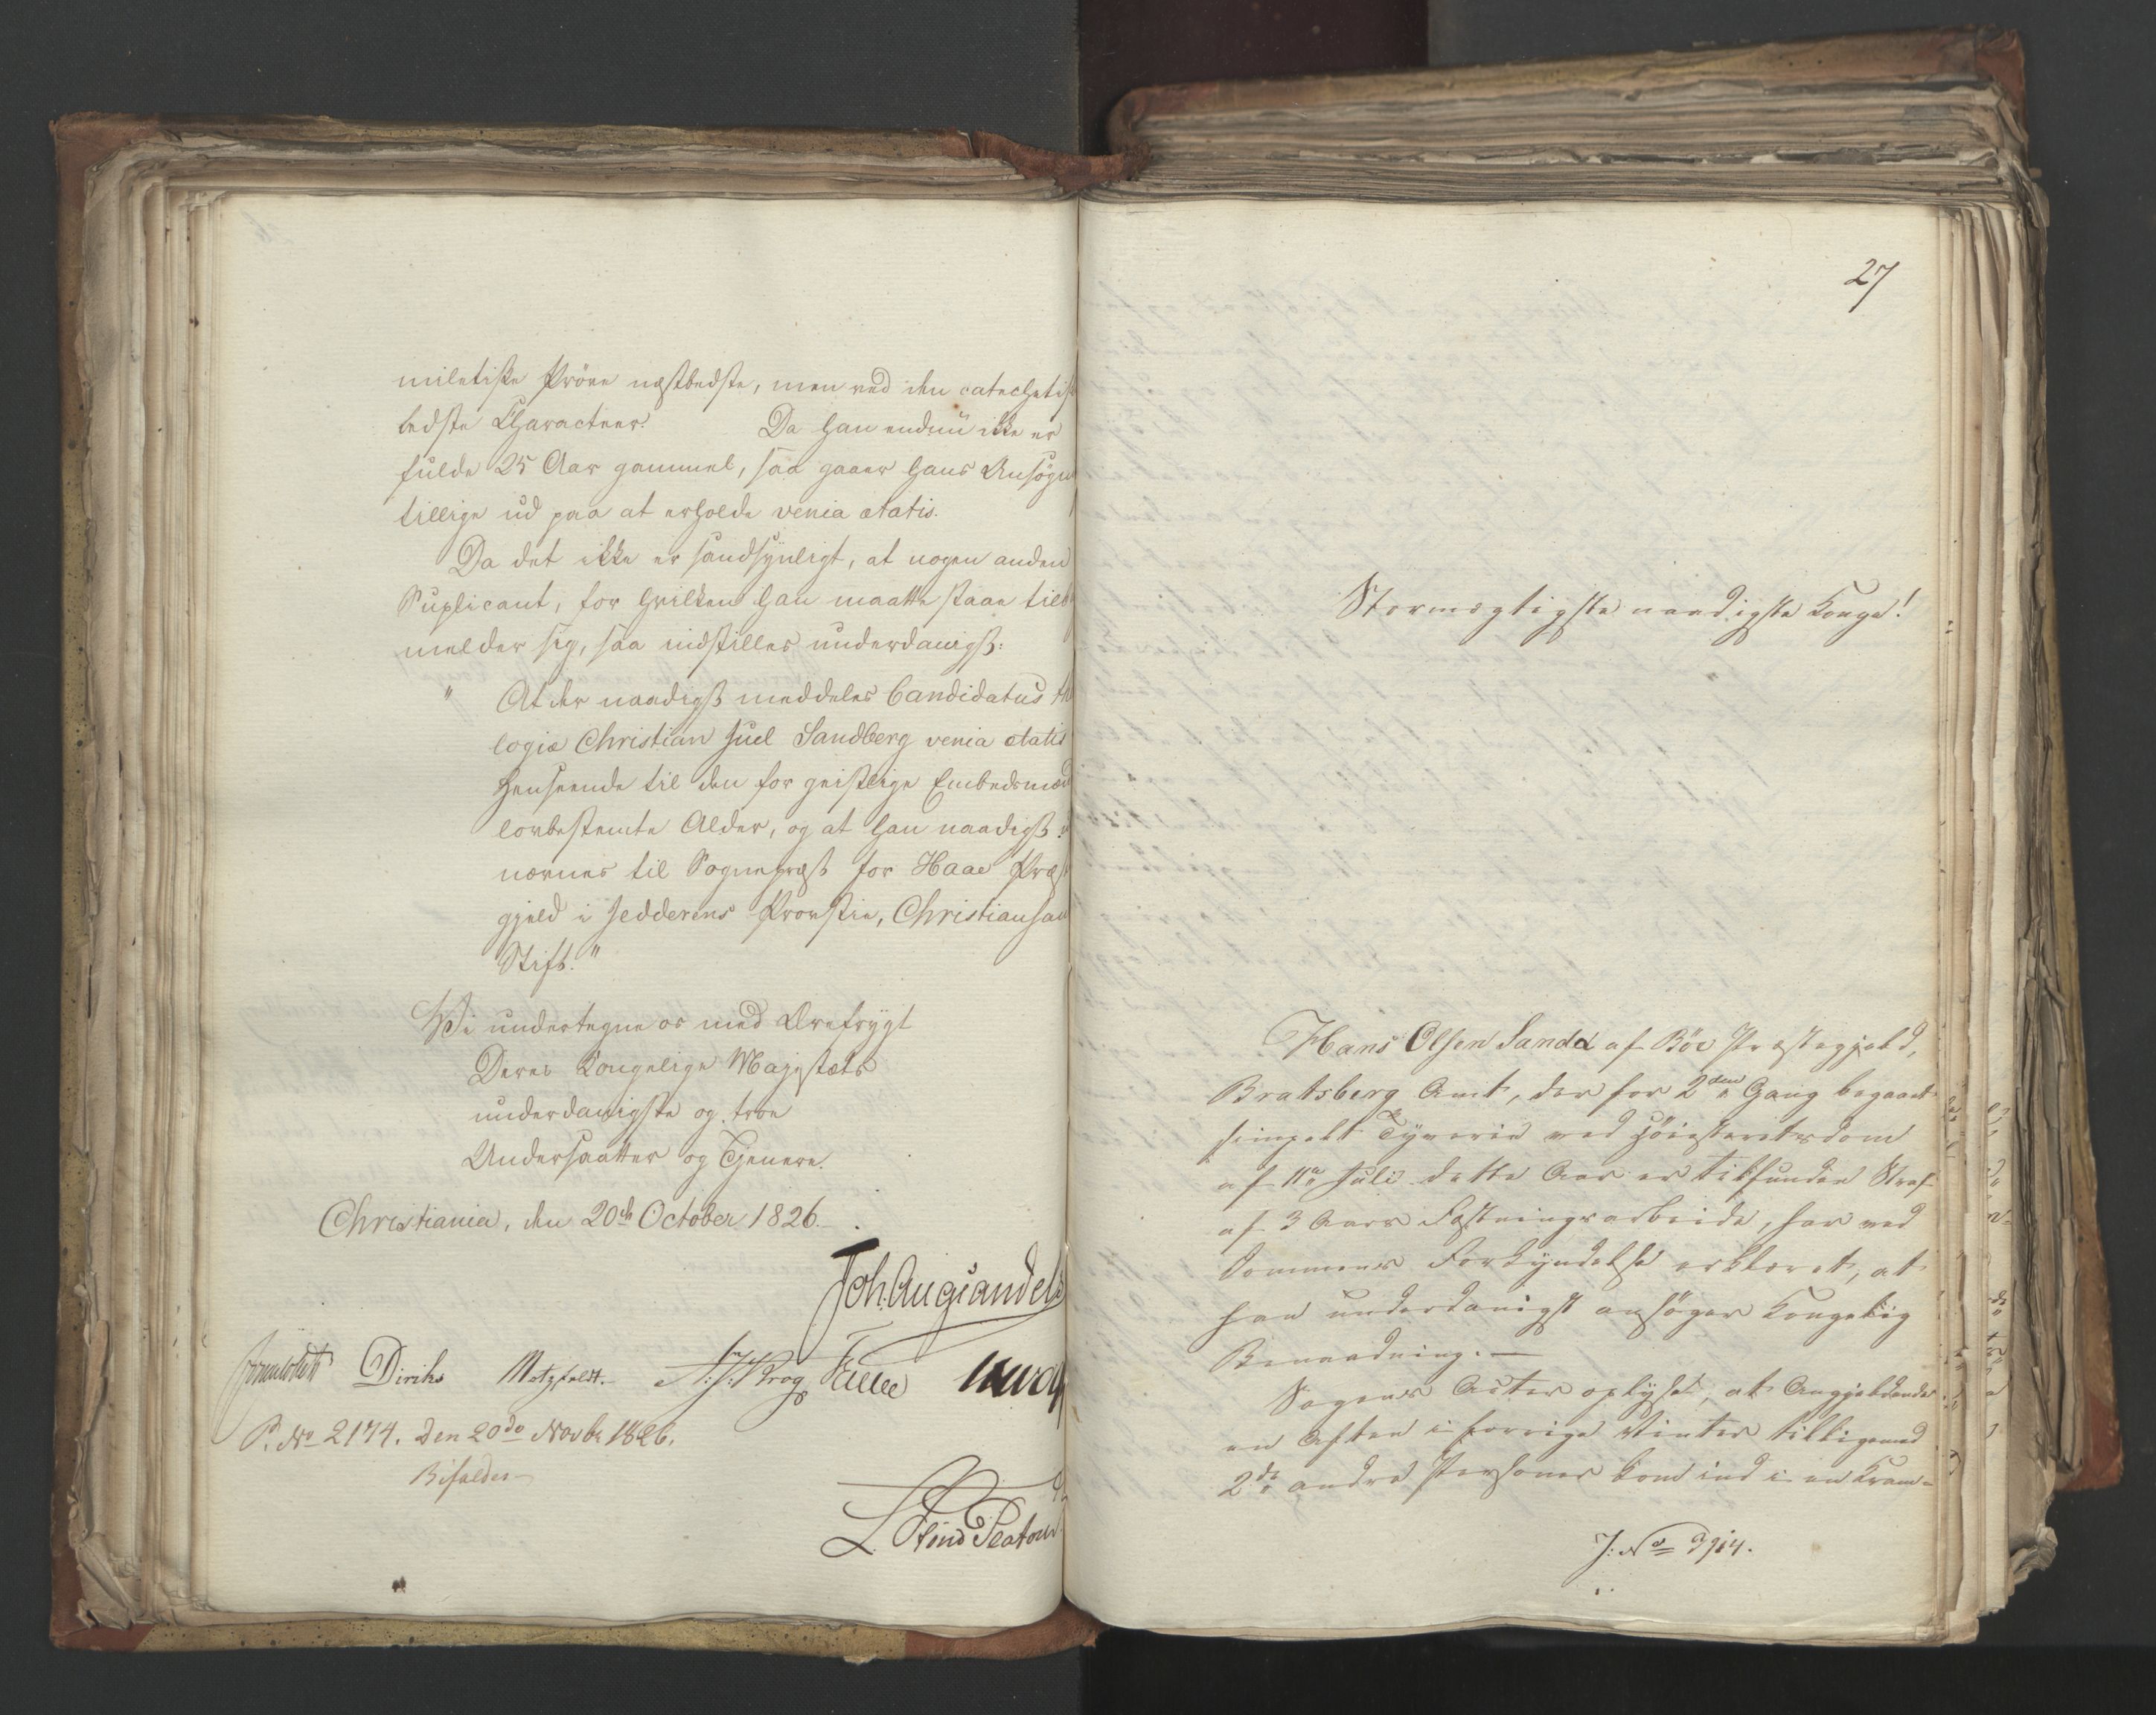 miletiske Prøve næstbedste, men ved den catechetis
bedste Characteer. Da han endnu ikke er
fulde 25 Aar gammel, saa gaaer hans Ansøgn
tillige ud paa at erholde venia ætatis.
Da det ikke er sandsynligt, at nogen anden
Suplicant, for hvilken han maatte staae tilb
melder sig, saa indstilles underdanigst:
" At der naadigst meddeles Candidatus
logiæ Christian Juel Sandberg venia ætatis
Henseende til den for geistlige Embedsmæ
lovbestemte Alder, og at han naadigst
nævnes til Sognepræst for Haae Præst
gjeld i Jedderens Provstie, Christiansan
Stift."
Vi undertegne os med Ærefrygt
Deres Kongelige Majestæts
underdanigste og troe
Undersaatter og Tjenere.
Christiania, den 20de October 1826.
Joh. Aug. Sandels
Sommerhielm Diriks Motzfeldt. Krog Falbe
P. No 2174. Den 20de Novbr 1826.
Bifaldes
L. Flind Platou
27
Stormægtigste naadigste Konge!
Hans Olsen Sanda af Bøe Præstegjeld,
Bratsberg Amt, der for 2den Gang begaaet
simpelt Tyverie ved Høiesteretsdom
af 11te Juli dette Aar er tilfunden Straf
af 3 Aars Fæstningsarbeide, har ved
Dommens Forkyndelse erklæret, at
han underdanigst ansøger Kongelig
Benaadning. —
Sagens Acter oplyse, at Angjeldende
en Aften i forrige Vinter tilligemed
2de andre Personer kom ind i en Kram-
J: No 3914.